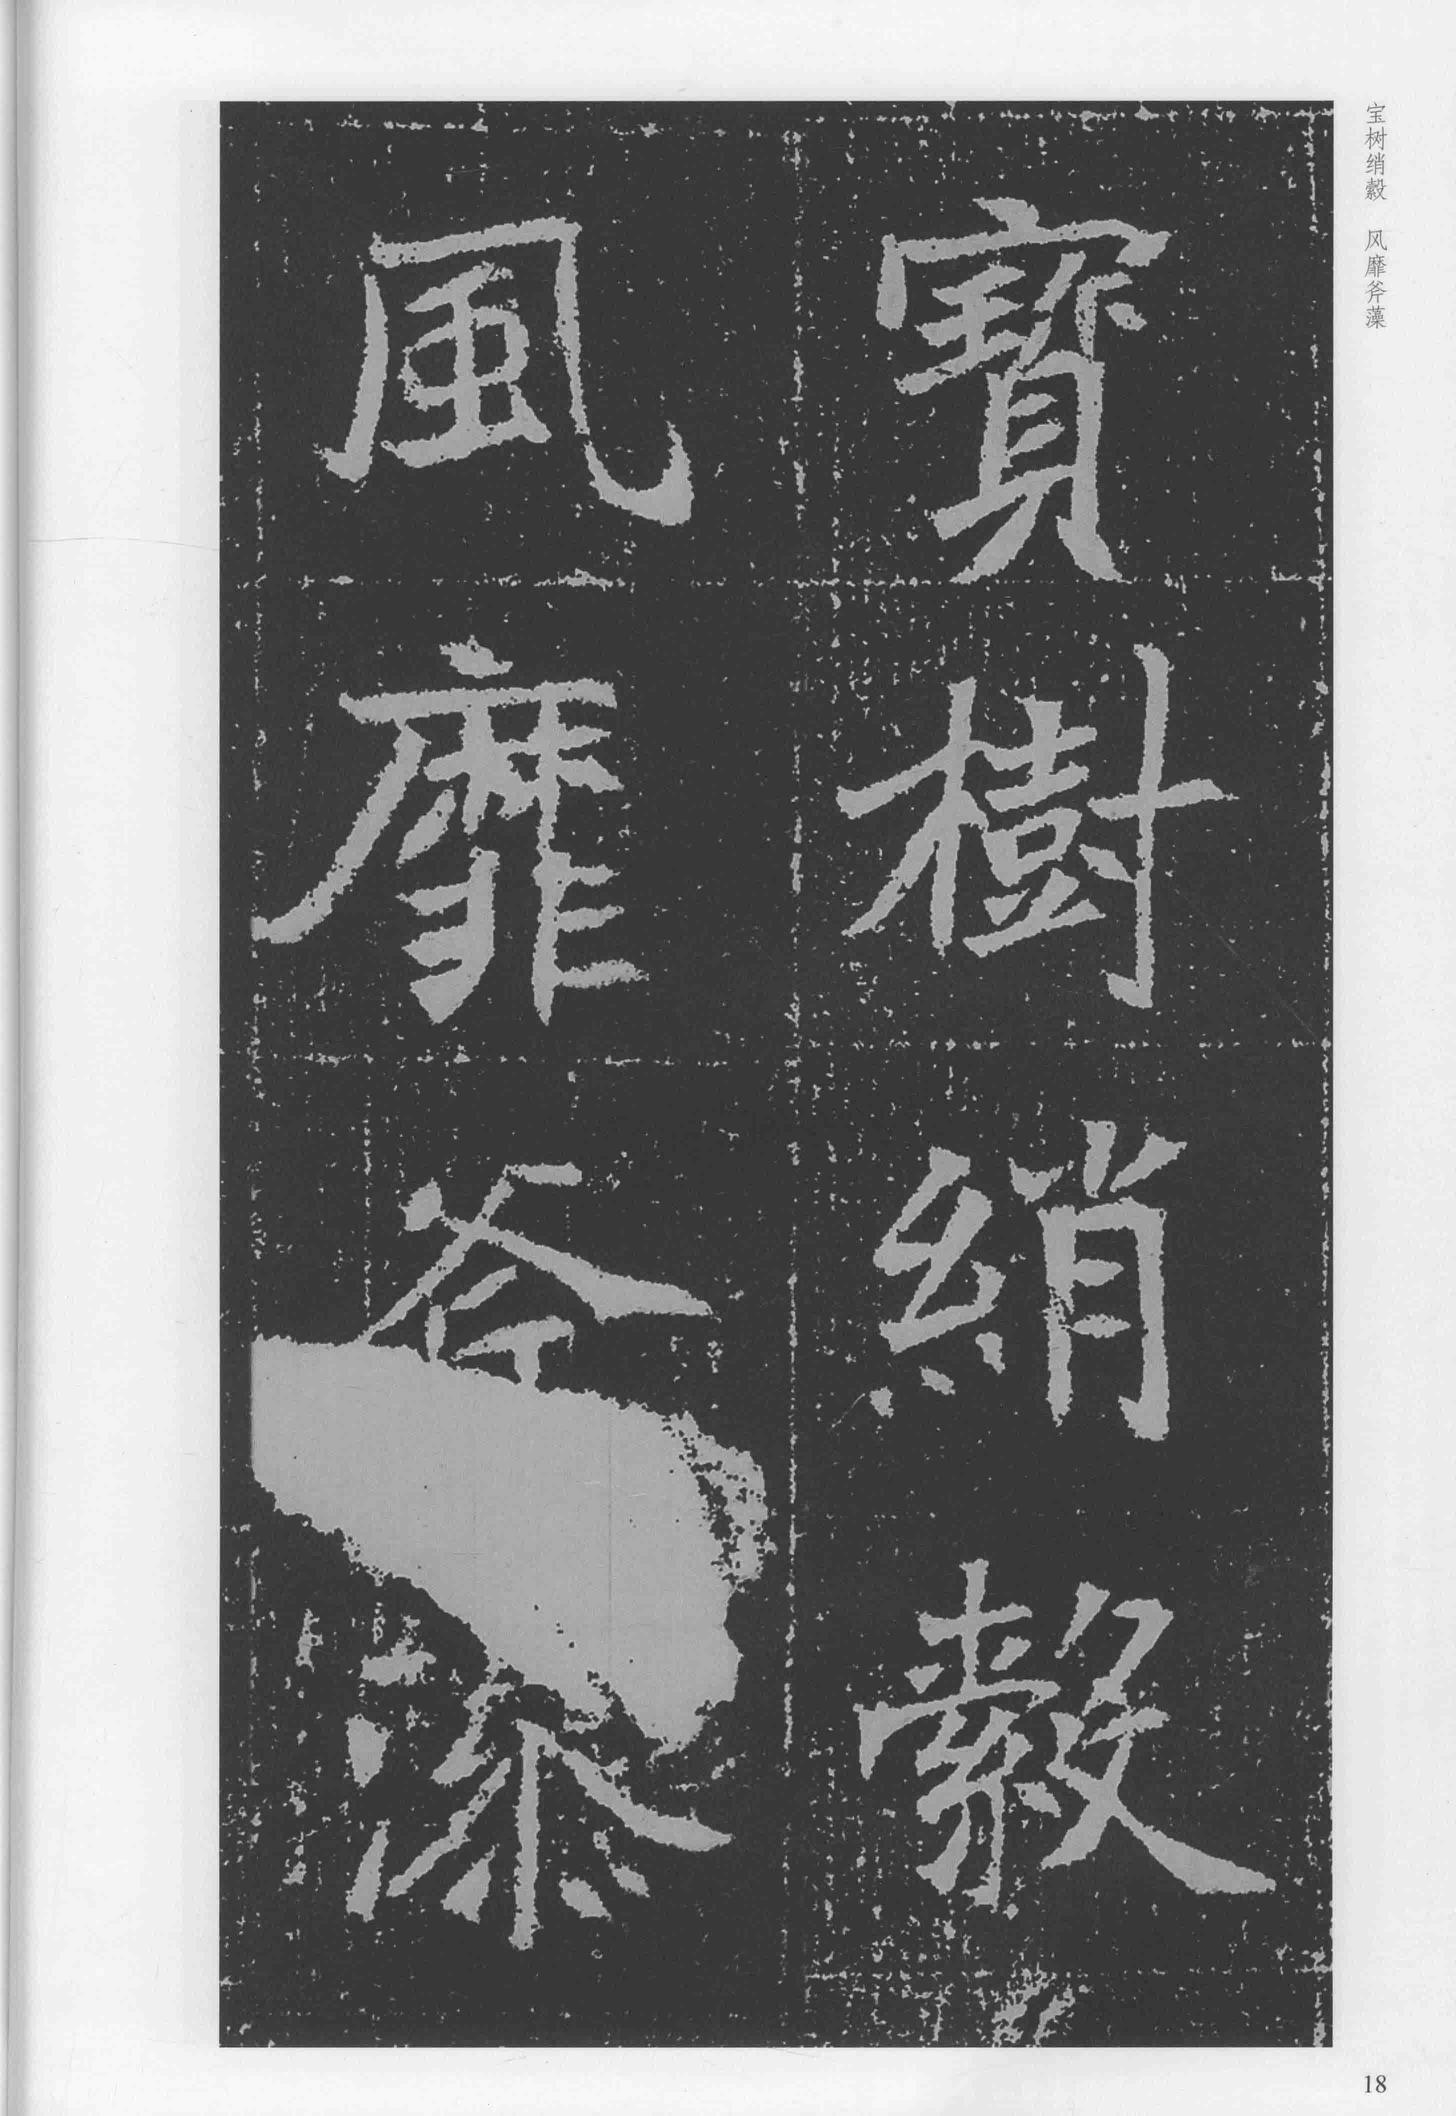 宝树绡縠　风靡斧藻
寶樹綃縠
風靡斧
18